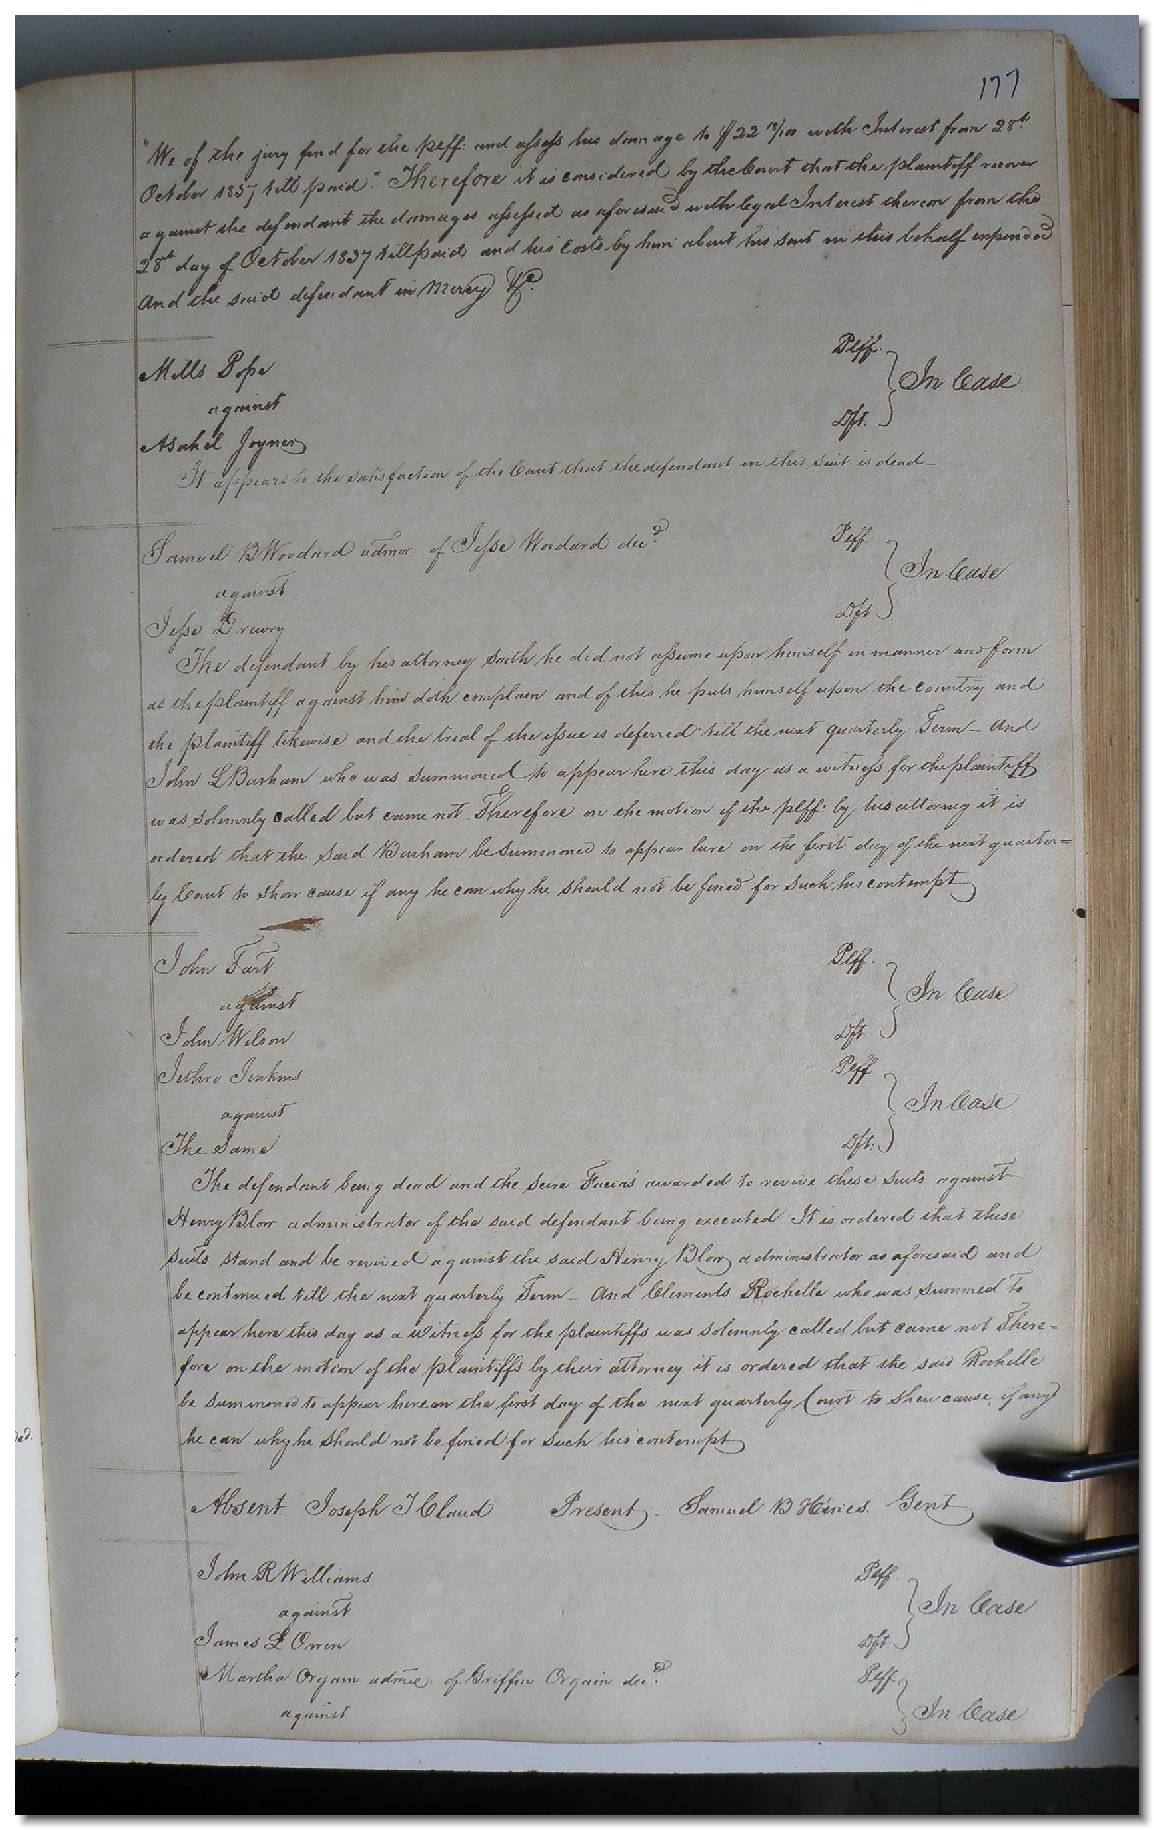 177
"We of the jury find for the plff. and assess his damage to $22 with Interest from 28th
October 1837 till paid". Therefore it is considered by the Court that the plaintiff recover
against the defendant the damages assessed as aforesaid with legal Interest thereon from the
28th day of October 1837 till paid and his Costs by him about his suit in this behalf expended
And the said defendant in Mercy &c.
Mills Pope Plff.
against In Case
Asahel Joyner Dft.
It appears to the satisfaction of the Court that the defendant in this suit is dead—
Samuel B Woodard admor of Jesse Woodard decd. Plff
against In Case
Jesse Drewry Dft
The defendant by his attorney saith he did not assume upon himself in manner and form
as the plaintiff against him doth complain and of this he puts himself upon the country and
the plaintiff likewise and the trial of the issue is deferred till the next quarterly Term— And
John L Barham who was summoned to appear here this day as a witness for the plaintiff
was solemnly called but came not. Therefore on the motion of the plff. by his attorney it is
ordered that the said Barham be summoned to appear here on the first day of the next quarter=
ly Court to shew cause if any he can why he should not be fined for such his contempt
John Fart Plff.
against In Case
John Wilson Dft
Jethro Jenkins Plff
against In Case
The Same Dft.
The defendant being dead and the Scire Facias awarded to revive these suits against
Henry Blow administrator of the said defendant being executed It is ordered that these
suits stand and be revived against the said Henry Blow administrator as aforesaid and
be continued till the next quarterly Term— And Clements Rochelle who was summed to
appear here this day as a witness for the plaintiffs was solemnly called but came not There=
fore on the motion of the plaintiffs by their attorney it is ordered that the said Rochelle
be summoned to appear here on the first day of the next quarterly Court to shew cause, if any
he can why he should not be fined for such his contempt
Absent Joseph T Claud Present. Samuel B Hines. Gent
John R Williams Plff
against In Case
James L Owen Dft
Martha Orgain admx. of Griffin Orgain decd. Plff.
against In Case